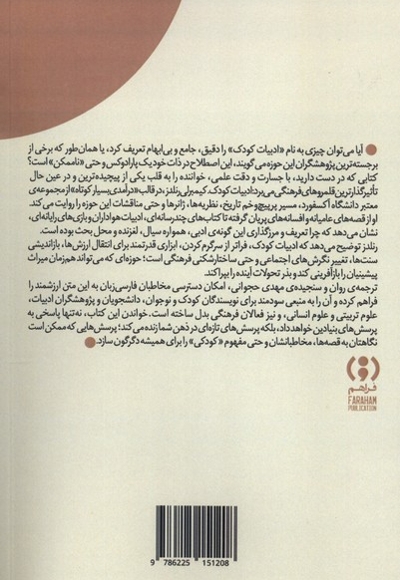 ● آیا می‌توان چیزی به نام «ادبیات کودک» را دقیق، جامع و بی‌ابهام تعریف کرد، یا همان‌طور که برخی از
برجسته‌ترین پژوهشگران این حوزه می‌گویند، این اصطلاح در ذات خود یک پارادوکس و حتی «ناممکن» است؟
کتابی که در دست دارید، با جسارت و دقت علمی، خواننده را به قلب یکی از پیچیده‌ترین و در عین حال
تأثیرگذارترین قلمروهای فرهنگی می‌برد: ادبیات کودک. کیمبرلی رنلدز، در قالب «درآمدی بسیار کوتاه» از مجموعه‌ی
معتبر دانشگاه آکسفورد، مسیر پرپیچ و خم تاریخ، نظریه‌ها، ژانرها و حتی مناقشات این حوزه را روایت می‌کند.
او از قصه‌های عامیانه و افسانه‌های پریان گرفته تا کتاب‌های چندرسانه‌ای، ادبیات هواداران و بازی‌های رایانه‌ای،
نشان می‌دهد که چرا تعریف و مرزگذاری این گونه‌ی ادبی، همواره سیال، لغزنده و محل بحث بوده است.
رنلدز توضیح می‌دهد که ادبیات کودک، فراتر از سرگرم کردن، ابزاری قدرتمند برای انتقال ارزش‌ها، بازاندیشی
سنت‌ها، تغییر نگرش‌های اجتماعی و حتی ساختارشکنی فرهنگی است؛ حوزه‌ای که می‌تواند هم‌زمان میراث
پیشینیان را بازآفرینی کند و بذر تحولات آینده را بپراکند.
ترجمه‌ی روان و سنجیده‌ی مهدی حجوانی، امکان دسترسی مخاطبان فارسی‌زبان به این متن ارزشمند را
فراهم کرده و آن را به منبعی سودمند برای نویسندگان کودک و نوجوان، دانشجویان و پژوهشگران ادبیات،
علوم تربیتی و علوم انسانی، و نیز فعالان فرهنگی بدل ساخته است. خواندن این کتاب، نه‌تنها پاسخی به
پرسش‌های بنیادین خواهد داد، بلکه پرسش‌های تازه‌ای در ذهن شما زنده می‌کند؛ پرسش‌هایی که ممکن است
نگاهتان به قصه‌ها، مخاطبانشان و حتی مفهوم «کودکی» را برای همیشه دگرگون سازد. ●
فراهم
FARAHAM
PUBLICATION
9 786225 151208